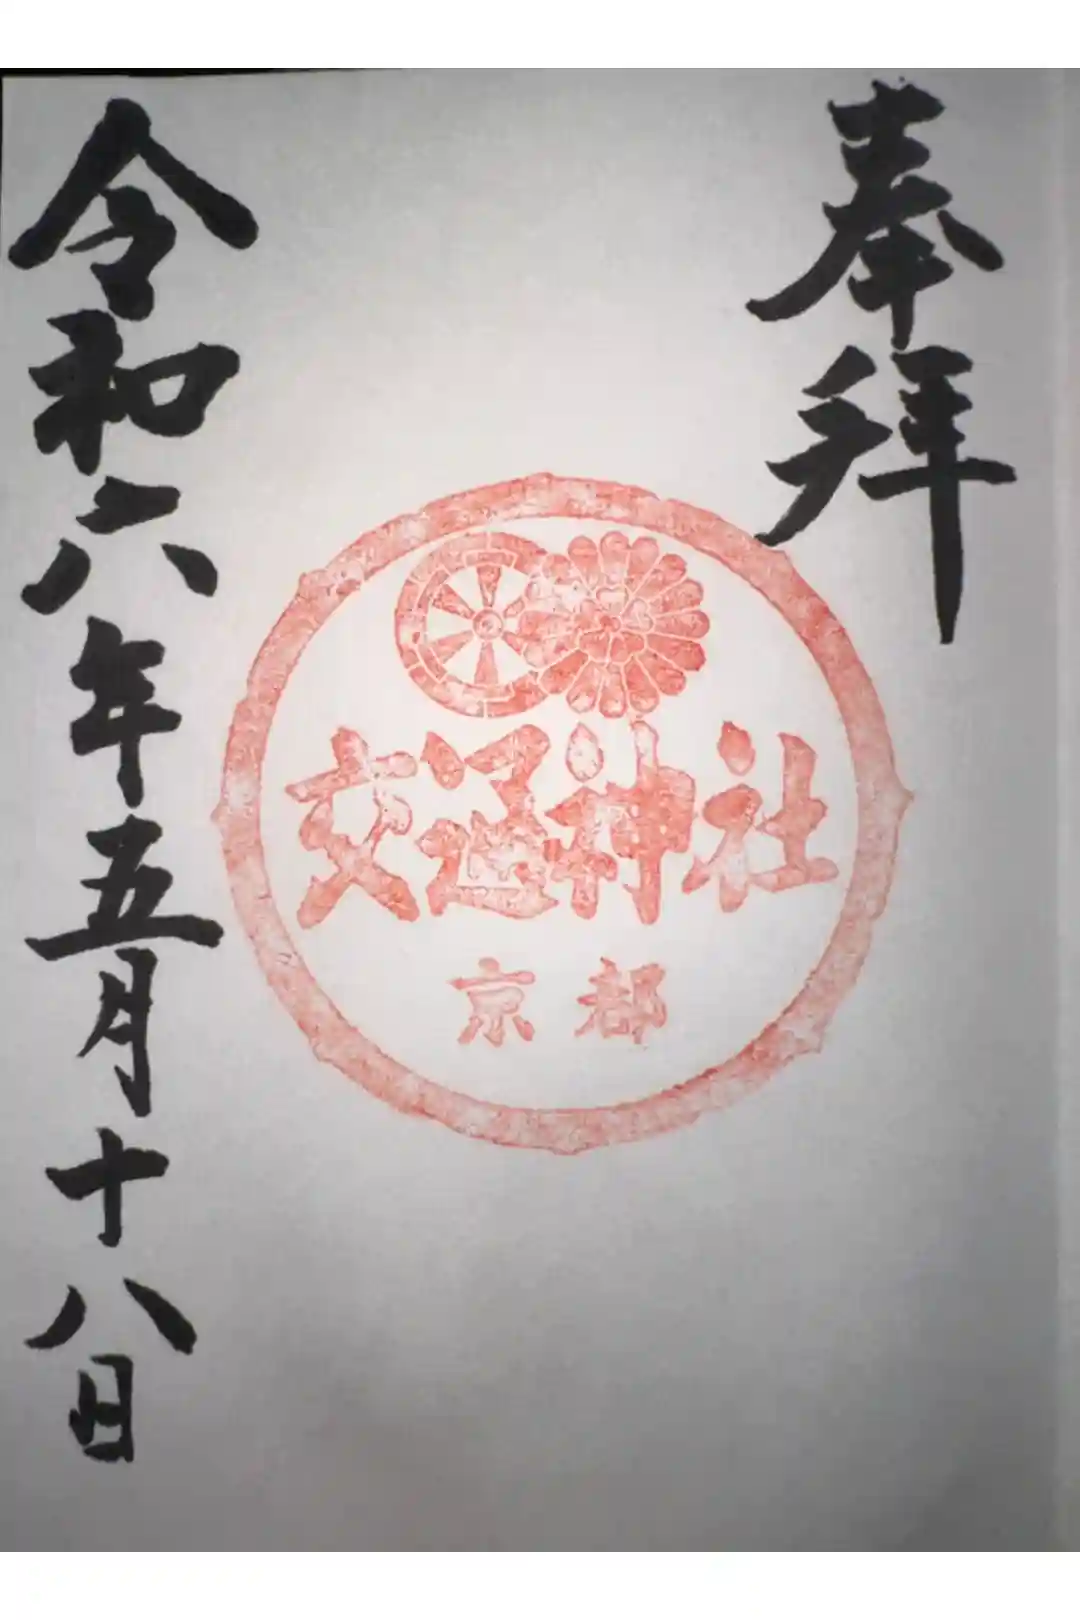 奉拜
交通神社
京都
令和六年五月十八日